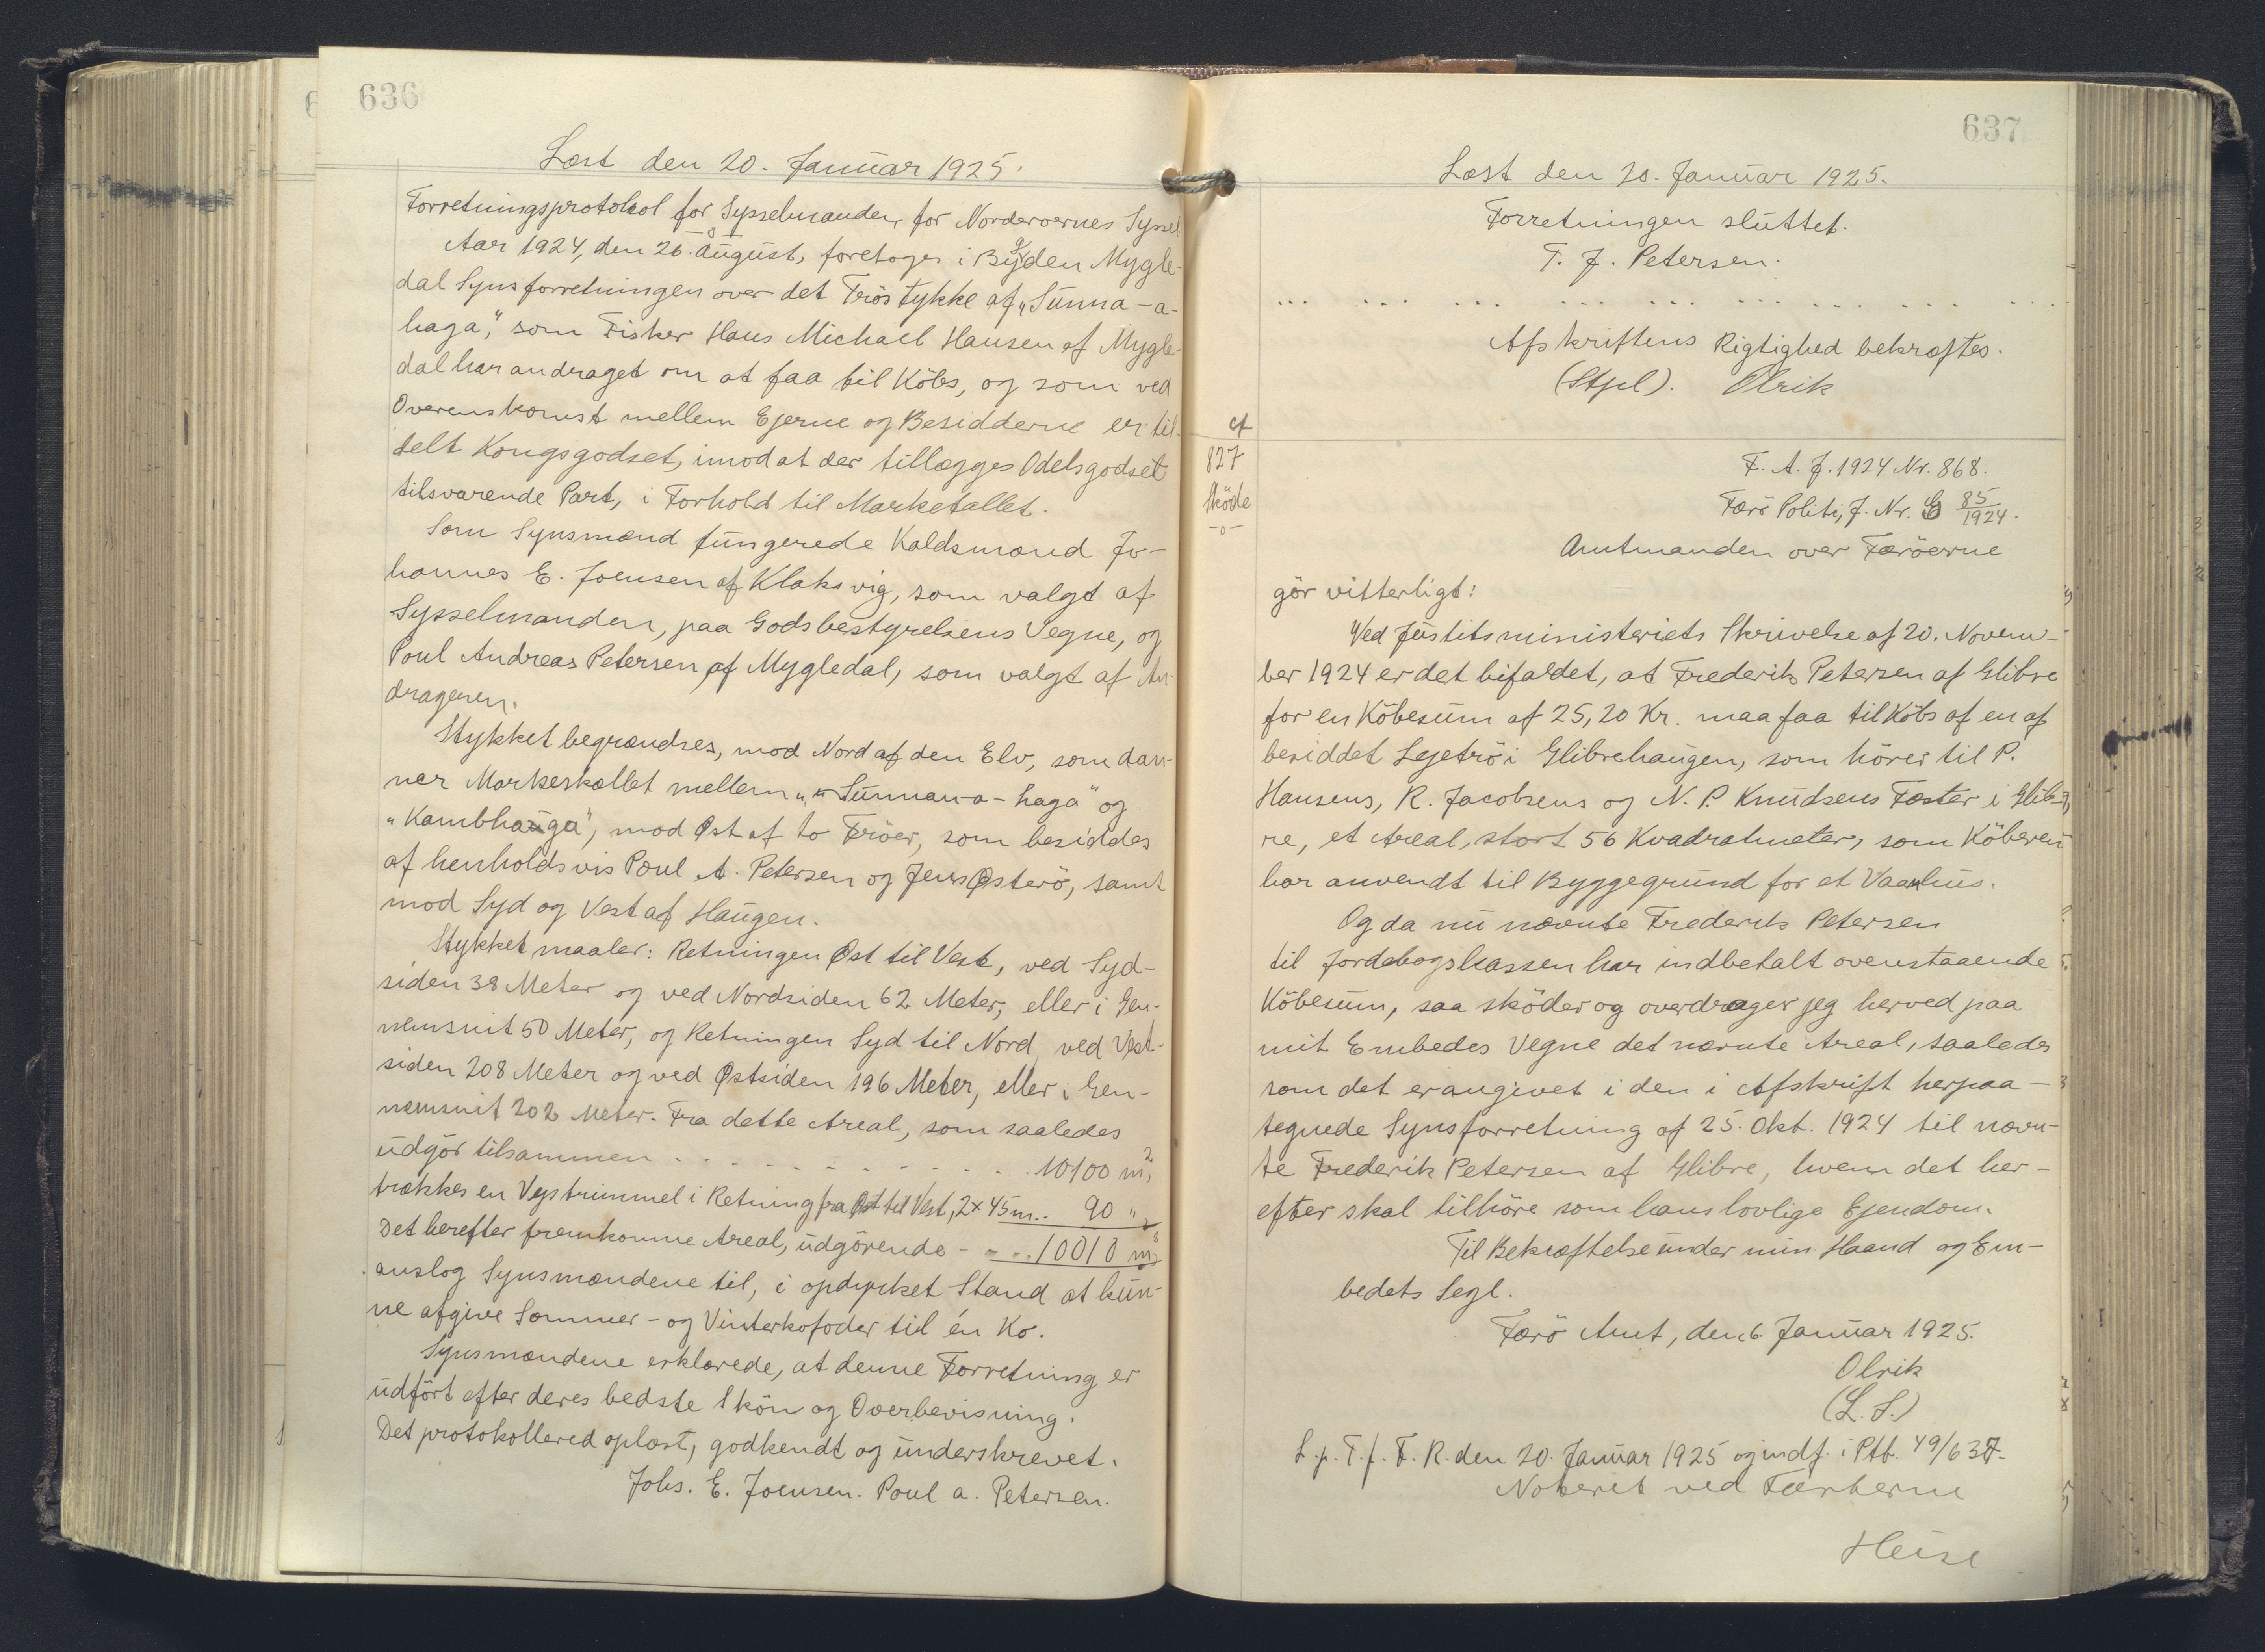 636
Læst den 20. Januar 1925.
Forretningsprotokol for Sysselmanden for Norderøernes Syssel
Aar 1924, den 26. August, foretoges i Bygden Mygle-
dal Synsforretningen over det Tröstykke af „Sunna-a-
haga", som Fisker Hans Michael Hansen af Mygle-
dal har andraget om at faa til Köbs, og som ved
Overenskomst mellem Ejerne og Besidderne er til-
delt Kongsgodset, imod at der tillægges Odelsgodset
tilsvarende Part, i Forhold til Marketallet.
Som Synsmænd fungerede Kaldsmænd Jo-
hannes E. Joensen af Klaksvig, som valgt af
Sysselmanden, paa Godsbestyrelsens Vegne, og
Poul Andreas Petersen af Mygledal, som valgt af An-
drageren.
Stykket begrændses, mod Nord af den Elv, som dan-
ner Markeskællet mellem „Sunnan-a-haga" og
„Kambhauga", mod Øst af to Tröer, som besiddes
af henholdsvis Poul A. Petersen og Jens Østerö, samt
mod Syd og Vest af Haugen.
Stykket maaler: Retningen Øst til Vest, ved Syd-
siden 38 Meter og ved Nordsiden 62 Meter, eller i Gen-
nemsnit 50 Meter, og Retningen Syd til Nord, ved Vest-
siden 208 Meter og ved Østsiden 196 Meter, eller i Gen-
nemsnit 202 Meter. Fra dette Areal, som saaledes
udgör tilsammen . . . . . . . . . . 10100 m²,
trækkes en Vejstrimmel i Retning fra Øst til Vest, 2 × 45 m.. 90 "
Det herefter fremkomne Areal, udgörende - - .. 10010 m²
anslog Synsmændene til, i opdyrket Stand at kun-
ne afgive Sommer- og Vinterkofoder til én Ko.
Synsmændene erklærede, at denne Forretning er
udfört efter deres bedste Skön og Overbevisning.
Det protokollered oplæst, godkendt og underskrevet.
Johs. E. Joensen. Poul A. Petersen.
637
Læst den 20. Januar 1925.
Forretningen sluttet.
T. J. Petersen.
... ... ... ... ... ... ... ... ... ...
Afskriftens Rigtighed bekræftes.
(Stpl). Olrik
cf
827
Sköde
-o-
F. A. J. 1924 Nr. 868.
Færö Politi, J. Nr. G 85/1924.
Amtmanden over Færöerne
gör vitterligt:
Ved Justitsministeriets Skrivelse af 20. Novem-
ber 1924 er det bifaldet, at Frederik Petersen af Glibre
for en Köbesum af 25,20 Kr. maa faa til Köbs af en af
besiddet Lejetrö i Glibrehaugen, som hörer til P.
Hansens, R. Jacobsens og N. P. Knudsens Fæster i Glib-
re, et Areal, stort 56 Kvadratmeter, som Köberen
har anvendt til Byggegrund for et Vaanhus.
Og da nu nævnte Frederik Petersen
til Jordebogskassen har indbetalt ovenstaaende
Köbesum, saa sköder og overdrager jeg herved paa
mit Embedes Vegne det nævnte Areal, saaledes
som det er angivet i den i Afskrift herpaa-
tegnede Synsforretning af 25. Okt. 1924 til nævn-
te Frederik Petersen af Glibre, hvem det her-
efter skal tilhöre som hans lovlige Ejendom.
Til Bekræftelse under min Haand og Em-
bedets Segl.
Færö Amt, den 6. Januar 1925.
Olrik
(L. S.)
L. p. T. f. F. R. den 20. Januar 1925 og indf. i Ptb. 49/637.
Noteret ved
Heise